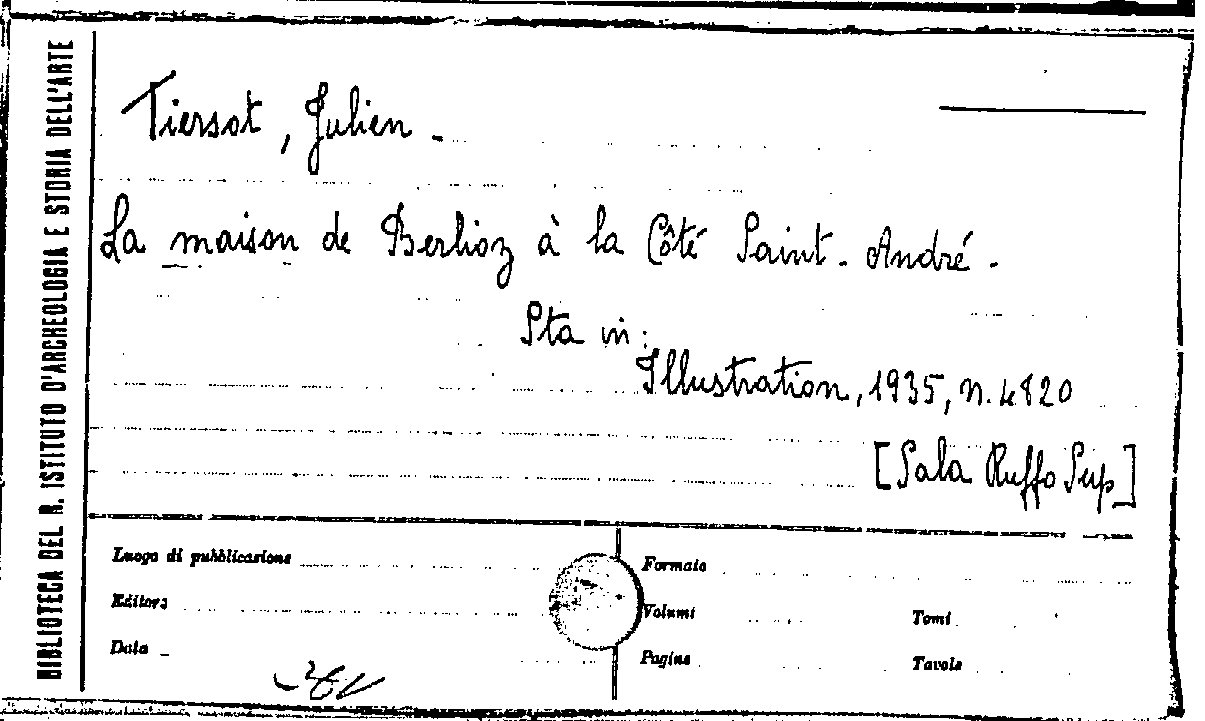 BIBLIOTECA DEL R. ISTITUTO D'ARCHEOLOGIA E STORIA DELL'ARTE
Tiersot, Julien -
La maison de Berlioz à la Côté Saint-André -
Sta in:
Illustration, 1935, n. 4820
[Sala Ruffo Sup]
Luogo di pubblicazione
Editore
Data
Formato
Volumi Tomi
Pagine Tavole